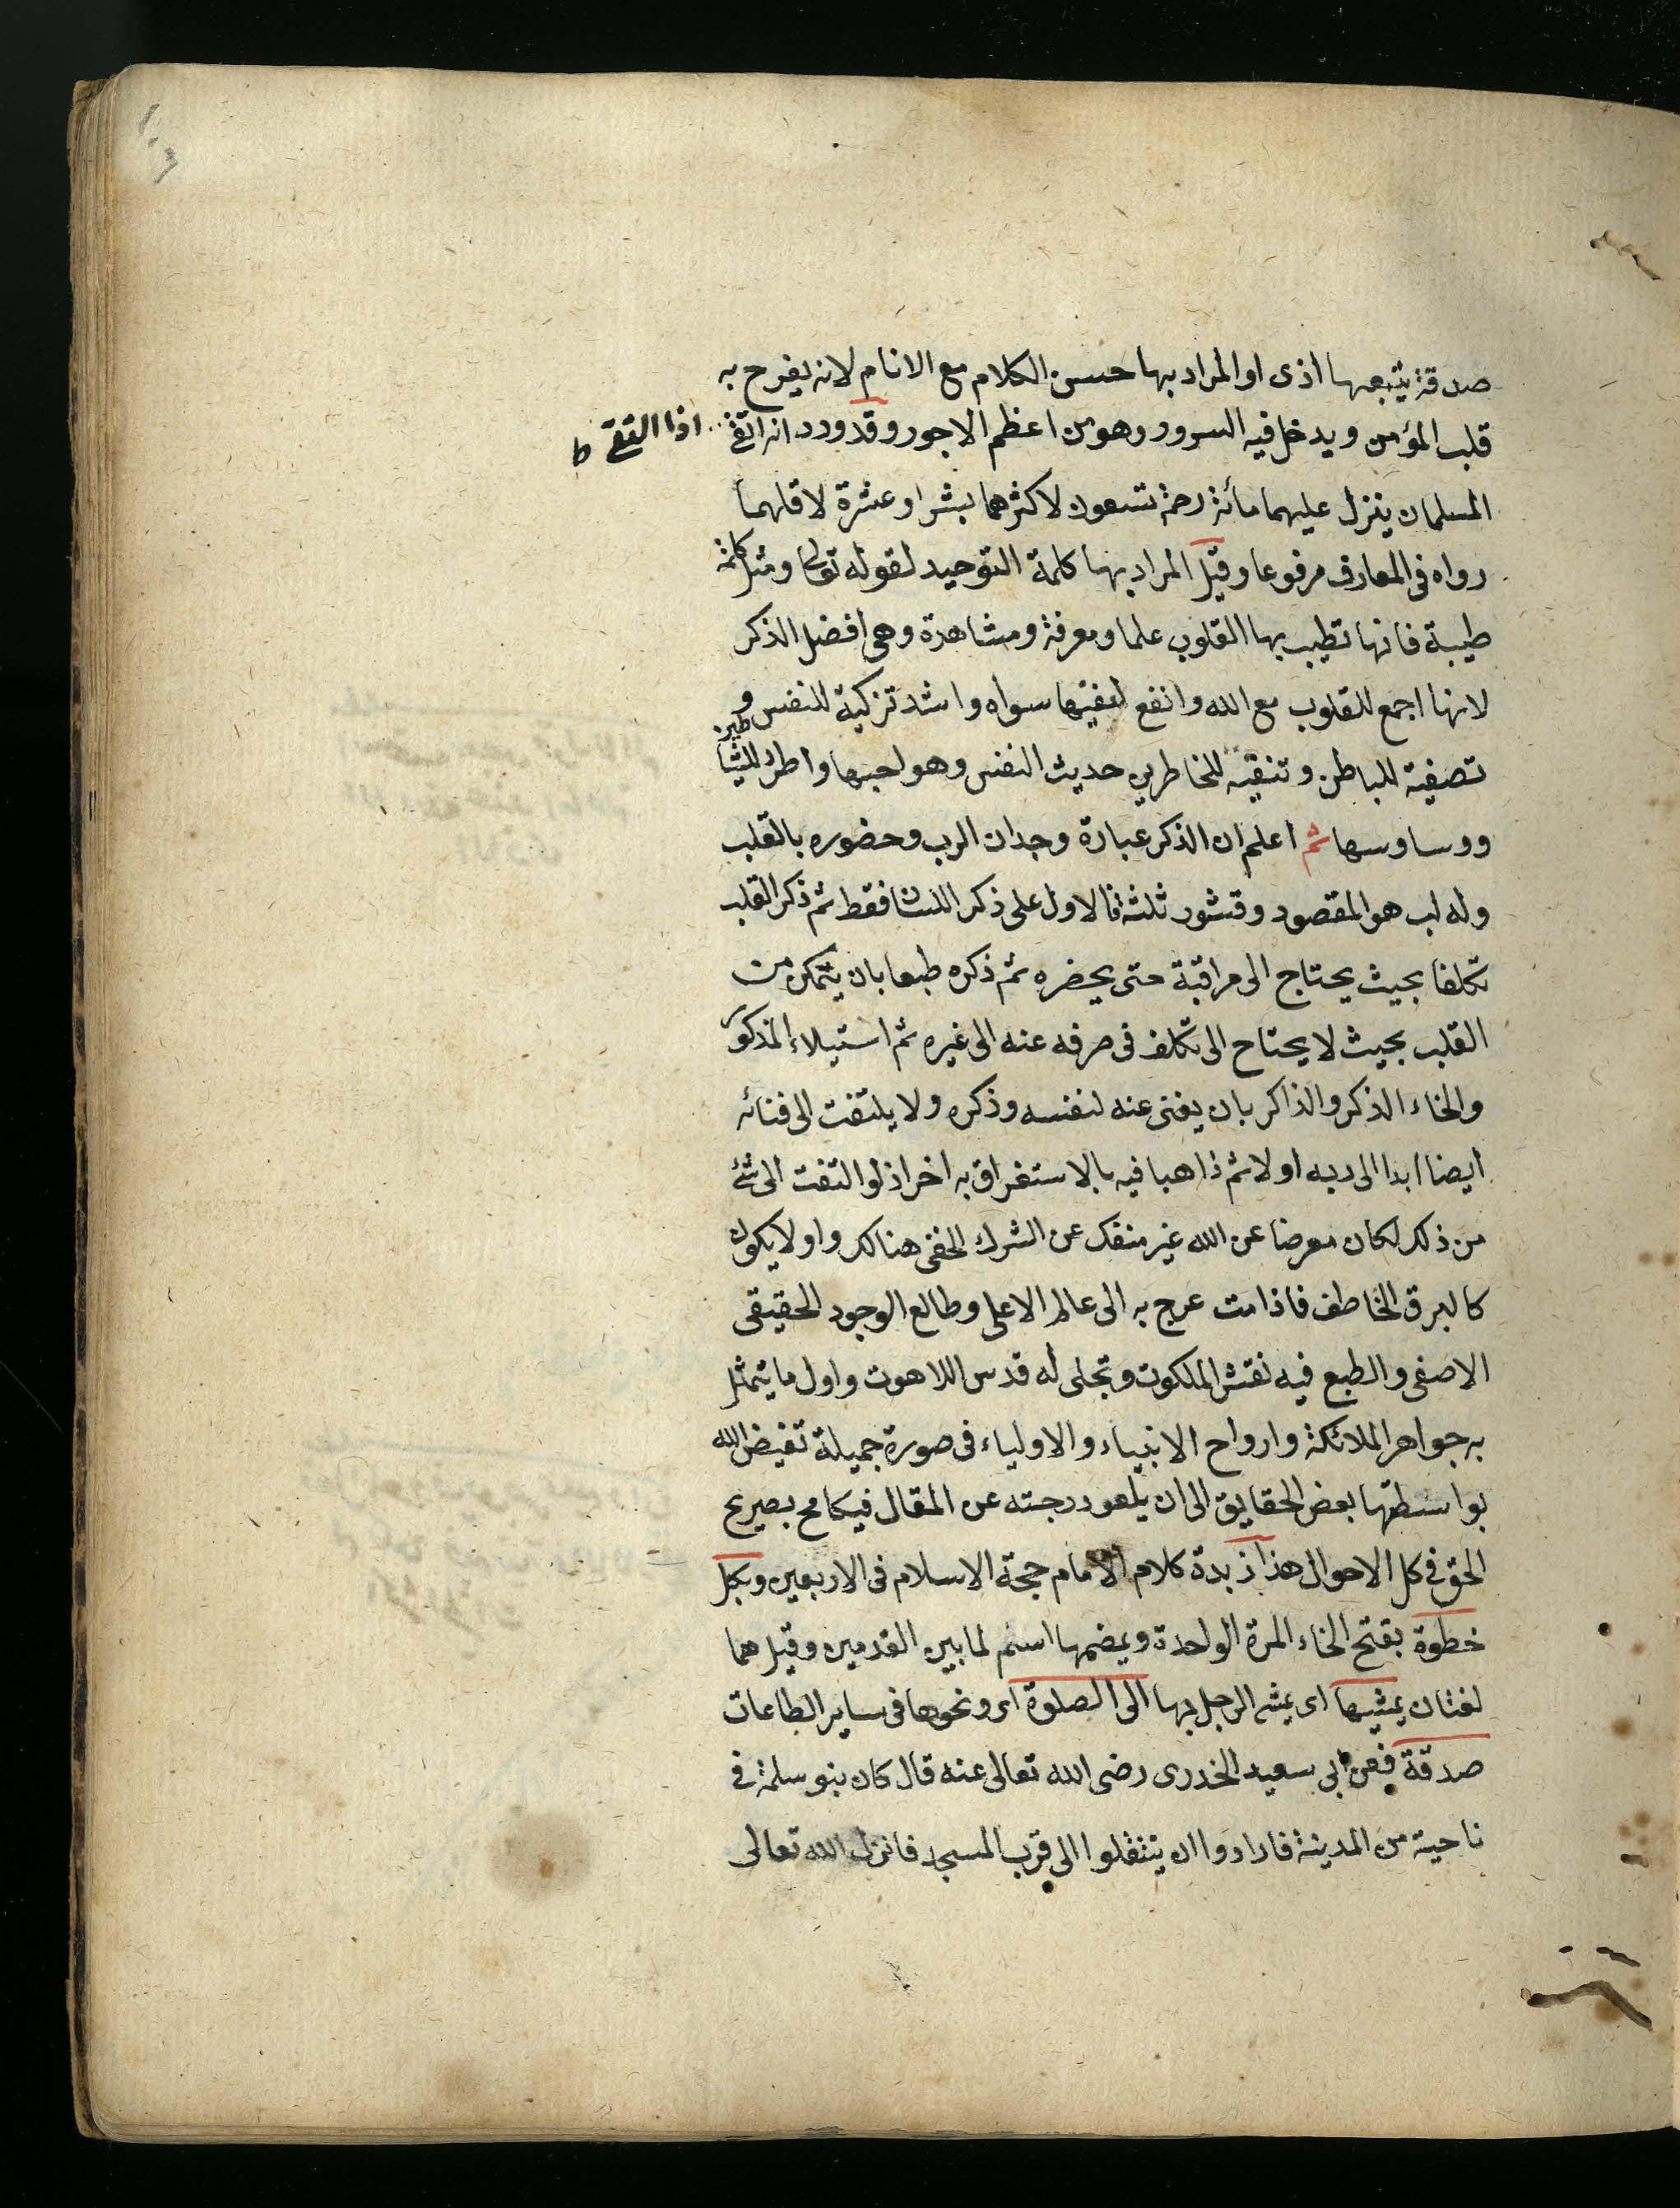 صدقة يتبعها اذى او المراد بها حسن الكلام مع الانام لانه يفرح به
قلب المؤمن ويدخل فيه السرور وهو من اعظم الاجور وقد ورد انه اتق
اذا التقى ط
المسلمان ينزل عليهما مائة رحمة تسعون لاكثرهما بشرا وعشرة لاقلهما
رواه في المعارف مرفوعا وقيل المراد بها كلمة التوحيد لقوله تعالى ومثل كلمة
طيبة فانها تطيب بها القلوب علما ومعرفة ومشاهدة وهى افضل الذكر
لانها اجمع للقلوب مع الله وانفع لنفيها سواه واشد تزكية للنفس و
تصفية للباطن وتنقية للخاطر من حديث النفس وهواجسها واطرد للشياطين
ووساوسها ثم اعلم ان الذكر عبارة وجدان الرب وحضوره بالقلب
وله لب هو المقصود وقشور ثلثة فالاول على ذكر اللسان فقط ثم ذكر القلب
تكلفا بحيث يحتاج الى مراقبة حتى يحضره ثم ذكره طبعا بان يتمكن من
القلب بحيث لا يحتاج الى تكلف فى صرفه عنه الى غيره ثم استيلاء المذكور
والخاء الذكر والذاكر بان يفنى عنه لنفسه وذكره ولا يلتفت الى فنائه
ايضا ابدا الى ربه اولا ثم ذاهبا فيه بالاستغراق به اخرا ذ لو التفت الى شئ
من ذلك لكان معرضا عن الله غير منفك عن الشرك الخفى هنالك واولا يكون
كالبرق الخاطف فاذا مت عرج به الى عالم الاعلى وطالع الوجود الحقيقى
الاصفى والطبع فيه نقش الملكوت وتجلى له قدس اللاهوت واول ما يتمثل
به جواهر الملائكة وارواح الانبياء والاولياء فى صورة جميلة تفيض الله
بواسطتها بعض الحقايق الى ان يلعو درجته عن المقال فيكافح بصريح
الحق فى كل الاحوال هذا زبدة كلام الامام حجة الاسلام فى الاربعين وبكل
خطوة بفتح الخاء المرة الواحدة وبضمها اسم لما بين القدمين وقيل هما
لغتان يمشيها اى يمشى الرجل بها الى الصلوة اى ونحوها فى ساير الطاعات
صدقة فعن ابى سعيد الخدرى رضى الله تعالى عنه قال كان بنو سلمة فى
ناحية من المدينة فارادوا ان ينتقلوا الى قرب المسجد فانزل الله تعالى